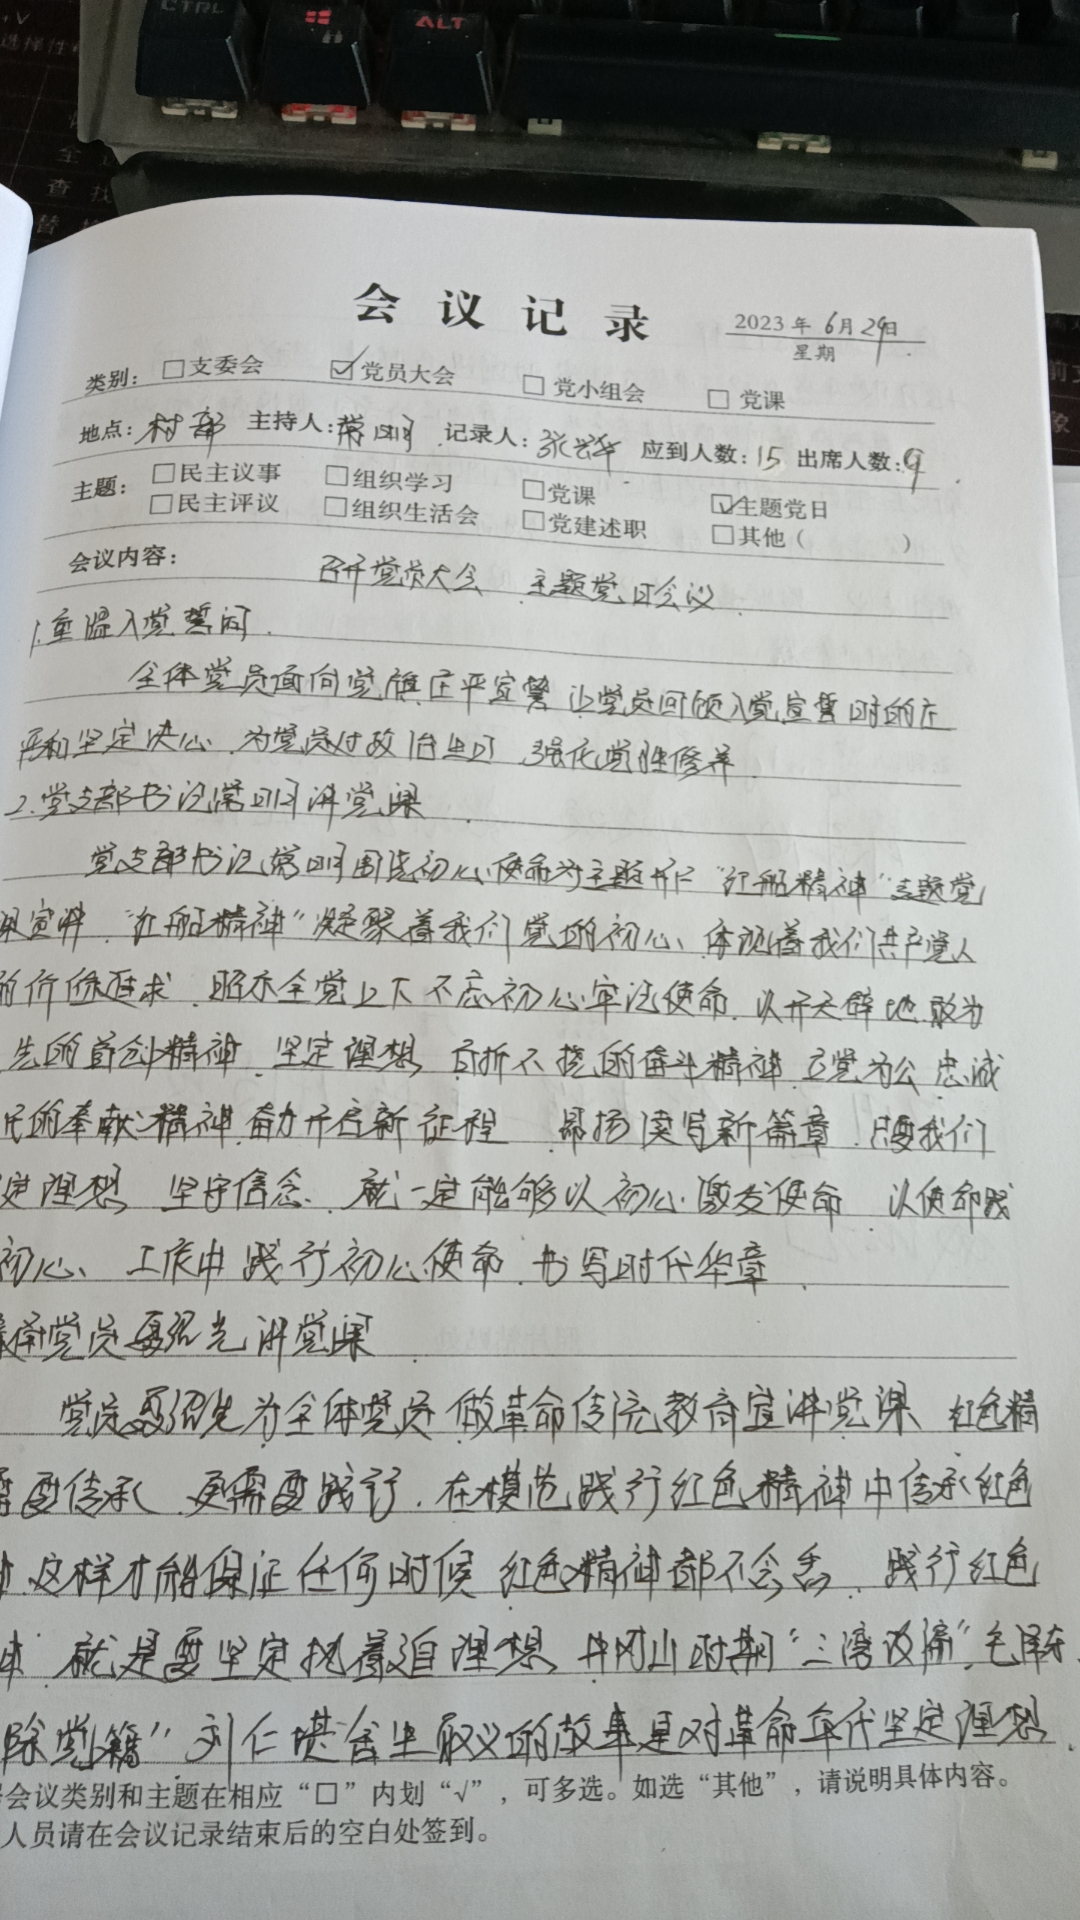 CTRL
ALT
会议记录
2023年6月29日
星期
类别：□支委会 ☑党员大会 □党小组会 □党课
地点：村部 主持人：常明 记录人： 应到人数：15 出席人数：9
主题：□民主议事 □组织学习 □党课 ☑主题党日
□民主评议 □组织生活会 □党建述职 □其他（ ）
会议内容： 召开党员大会 主题党日会议
1.重温入党誓词.
全体党员面向党旗庄严宣誓 让党员回顾入党宣誓时的庄
严和坚定决心. 为党员付政治生日 强化党性修养
2.党支部书记常明讲党课
党支部书记常明围绕初心使命为主题开展“红船精神”主题党
课宣讲. “红船精神”凝聚着我们党的初心、体现着我们共产党人
的价值追求. 昭示全党上下不忘初心牢记使命. 以开天辟地敢为
先的首创精神. 坚定理想 百折不挠的奋斗精神. 立党为公 忠诚
民的奉献精神. 奋力开启新征程 昂扬谱写新篇章. 只要我们
定理想 坚守信念. 就一定能够以初心激发使命 以使命践
初心、工作中践行初心使命. 书写时代华章.
党员聂绍先讲党课.
党员聂绍先为全体党员做革命传统教育宣讲党课 红色精
需要传承 更需要践行. 在模范践行红色精神中传承红色
这样才能保证任何时候红色精神都不会丢. 践行红色
就是要坚定执着追理想 井冈山时期“三湾改编”. 毛泽东
除党籍”. 刘仁堪舍生取义的故事是对革命年代坚定理想.
会议类别和主题在相应“□”内划“√”，可多选。如选“其他”，请说明具体内容。
人员请在会议记录结束后的空白处签到。